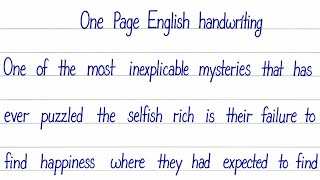 One Page English handwriting
One of the most inexplicable mysteries that has
ever puzzled the selfish rich is their failure to
find happiness where they had expected to find